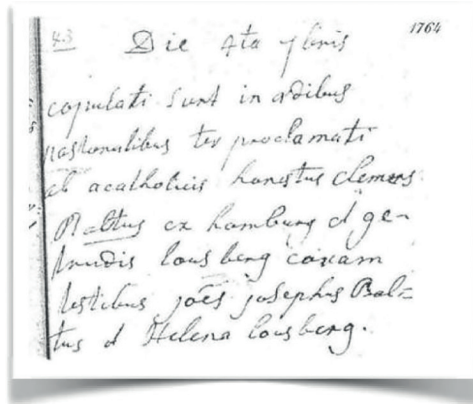 43 Die 4ta 7bris 1764
copulati sunt in ædibus
pastoralibus ter proclamati
et acatholicis honestus clemens
Baltus ex hamburg et ge-
trudis lousberg coram
testibus joes josephus Bal=
tus et Helena lousberg.